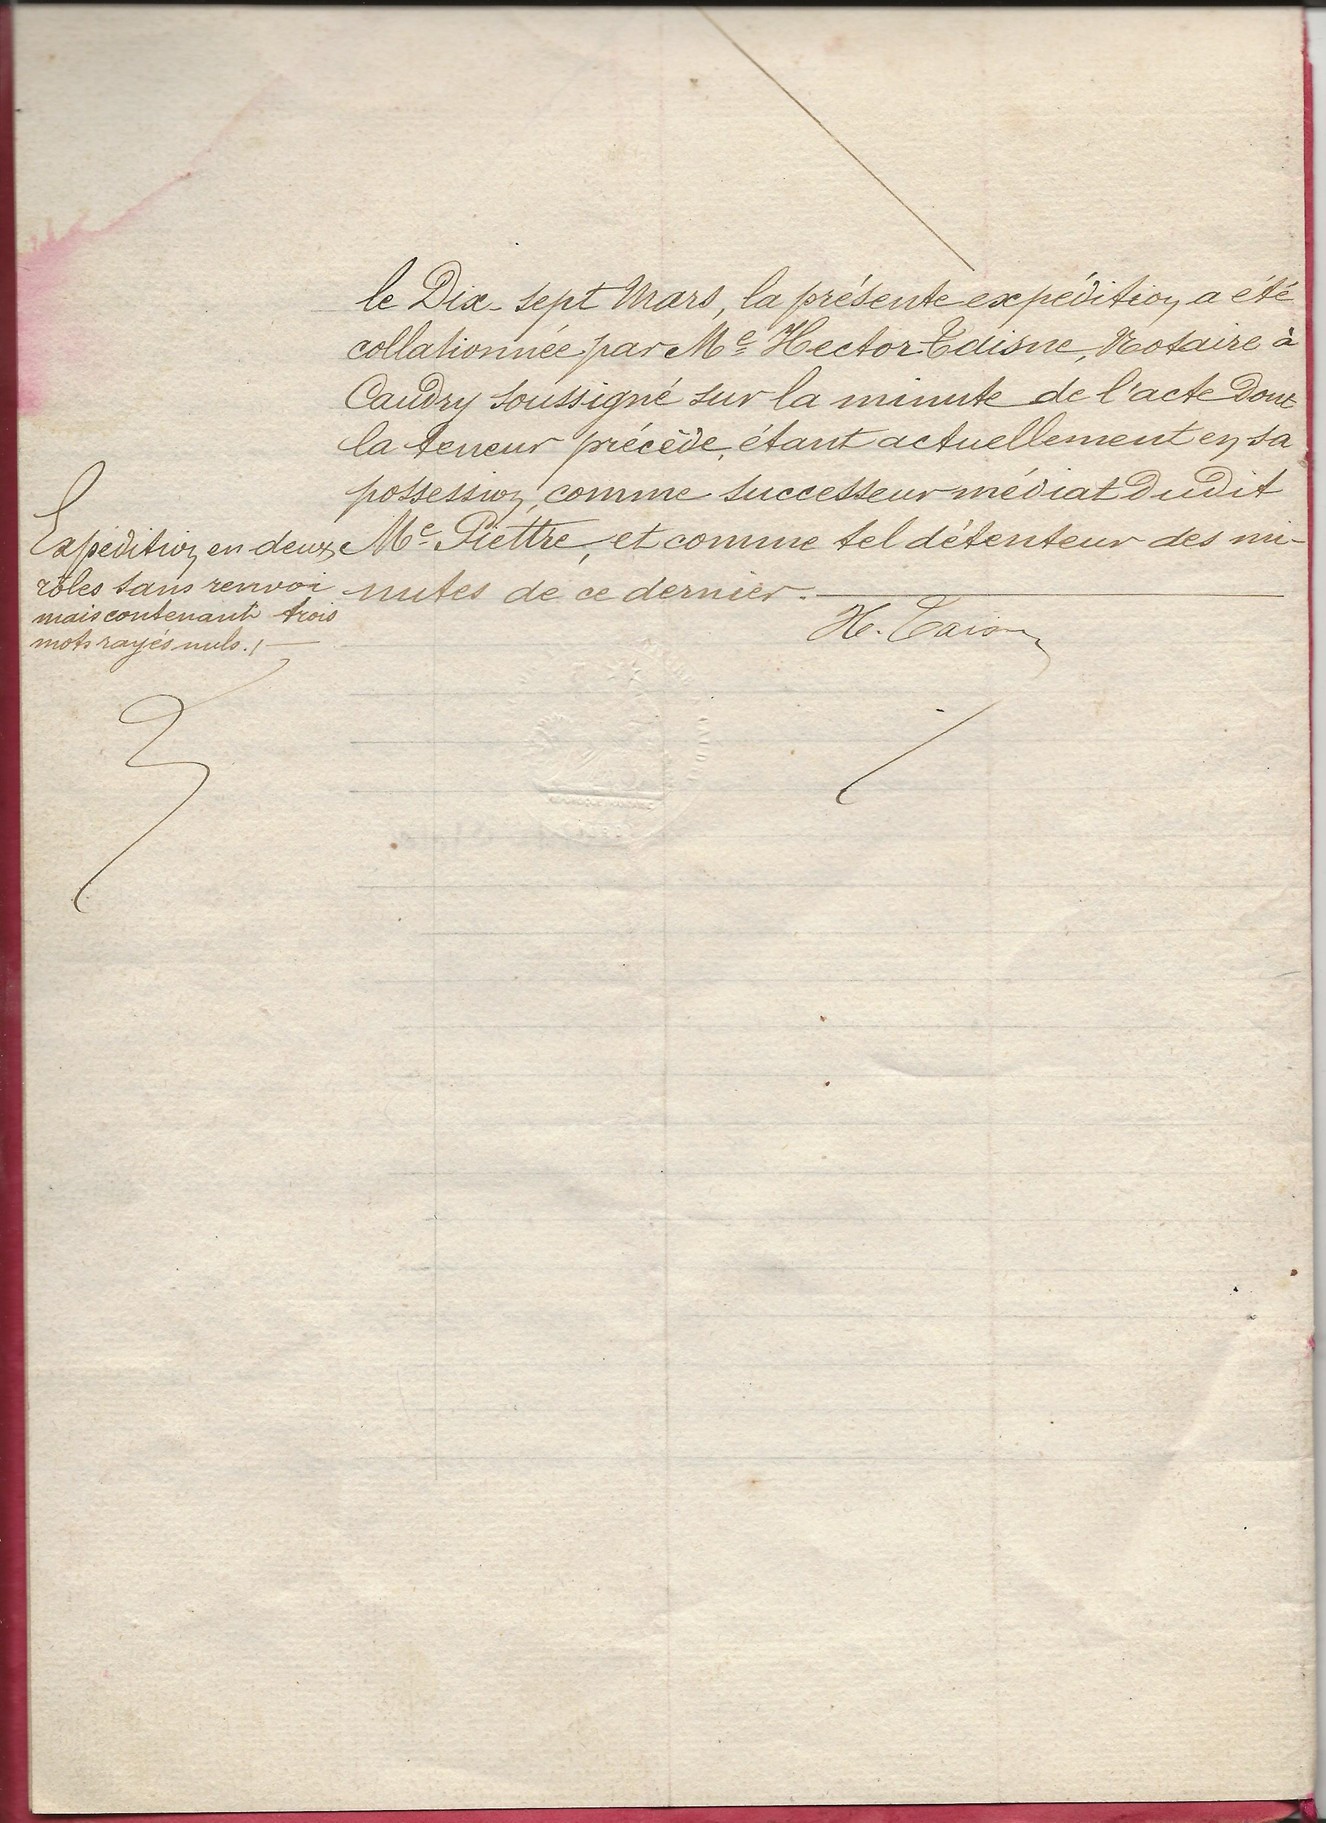 le Dix-sept Mars, la présente expédition a été
collationnée par Me Hector Taisne, Notaire à
Caudry soussigné sur la minute de l'acte dont
la teneur précède, étant actuellement en sa
possession, comme successeur médiat dudit
Me Piettre, et comme tel détenteur des mi-
nutes de ce dernier.
H. Taisne
Expédition en deux
rôles sans renvoi
mais contenant trois
mots rayés nuls./